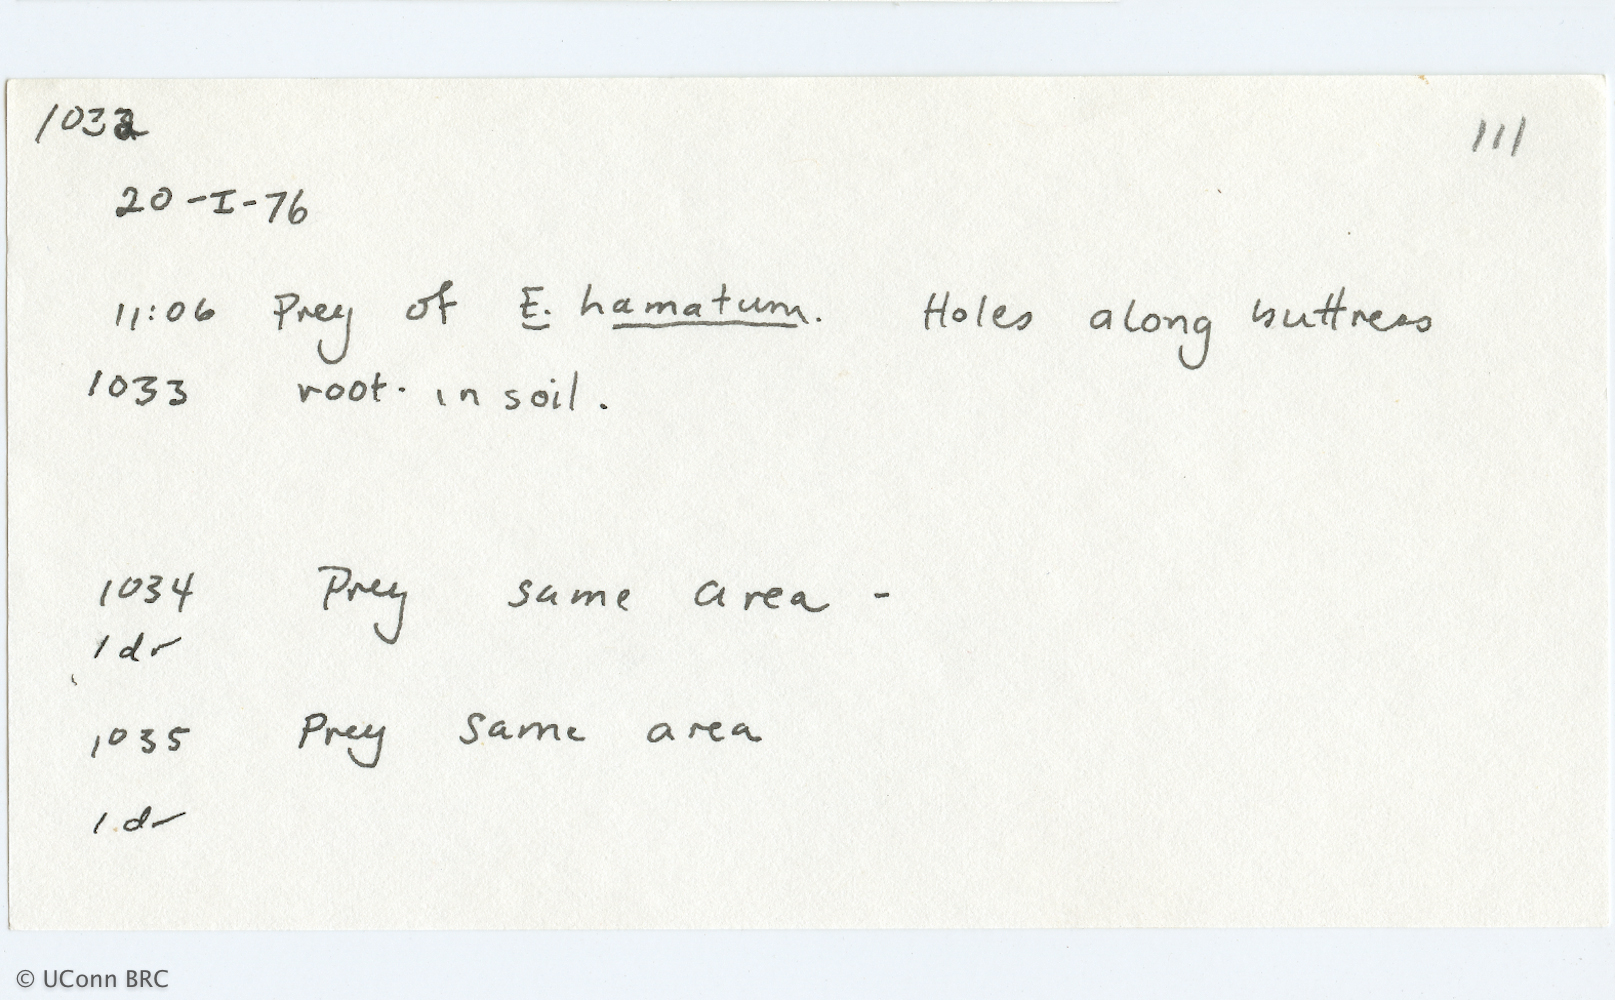 1032
111
20-I-76
11:06 Prey of E. hamatum. Holes along buttress
1033 root. in soil.
1034 Prey same area -
1 dr
1035 Prey same area
1 dr
© UConn BRC